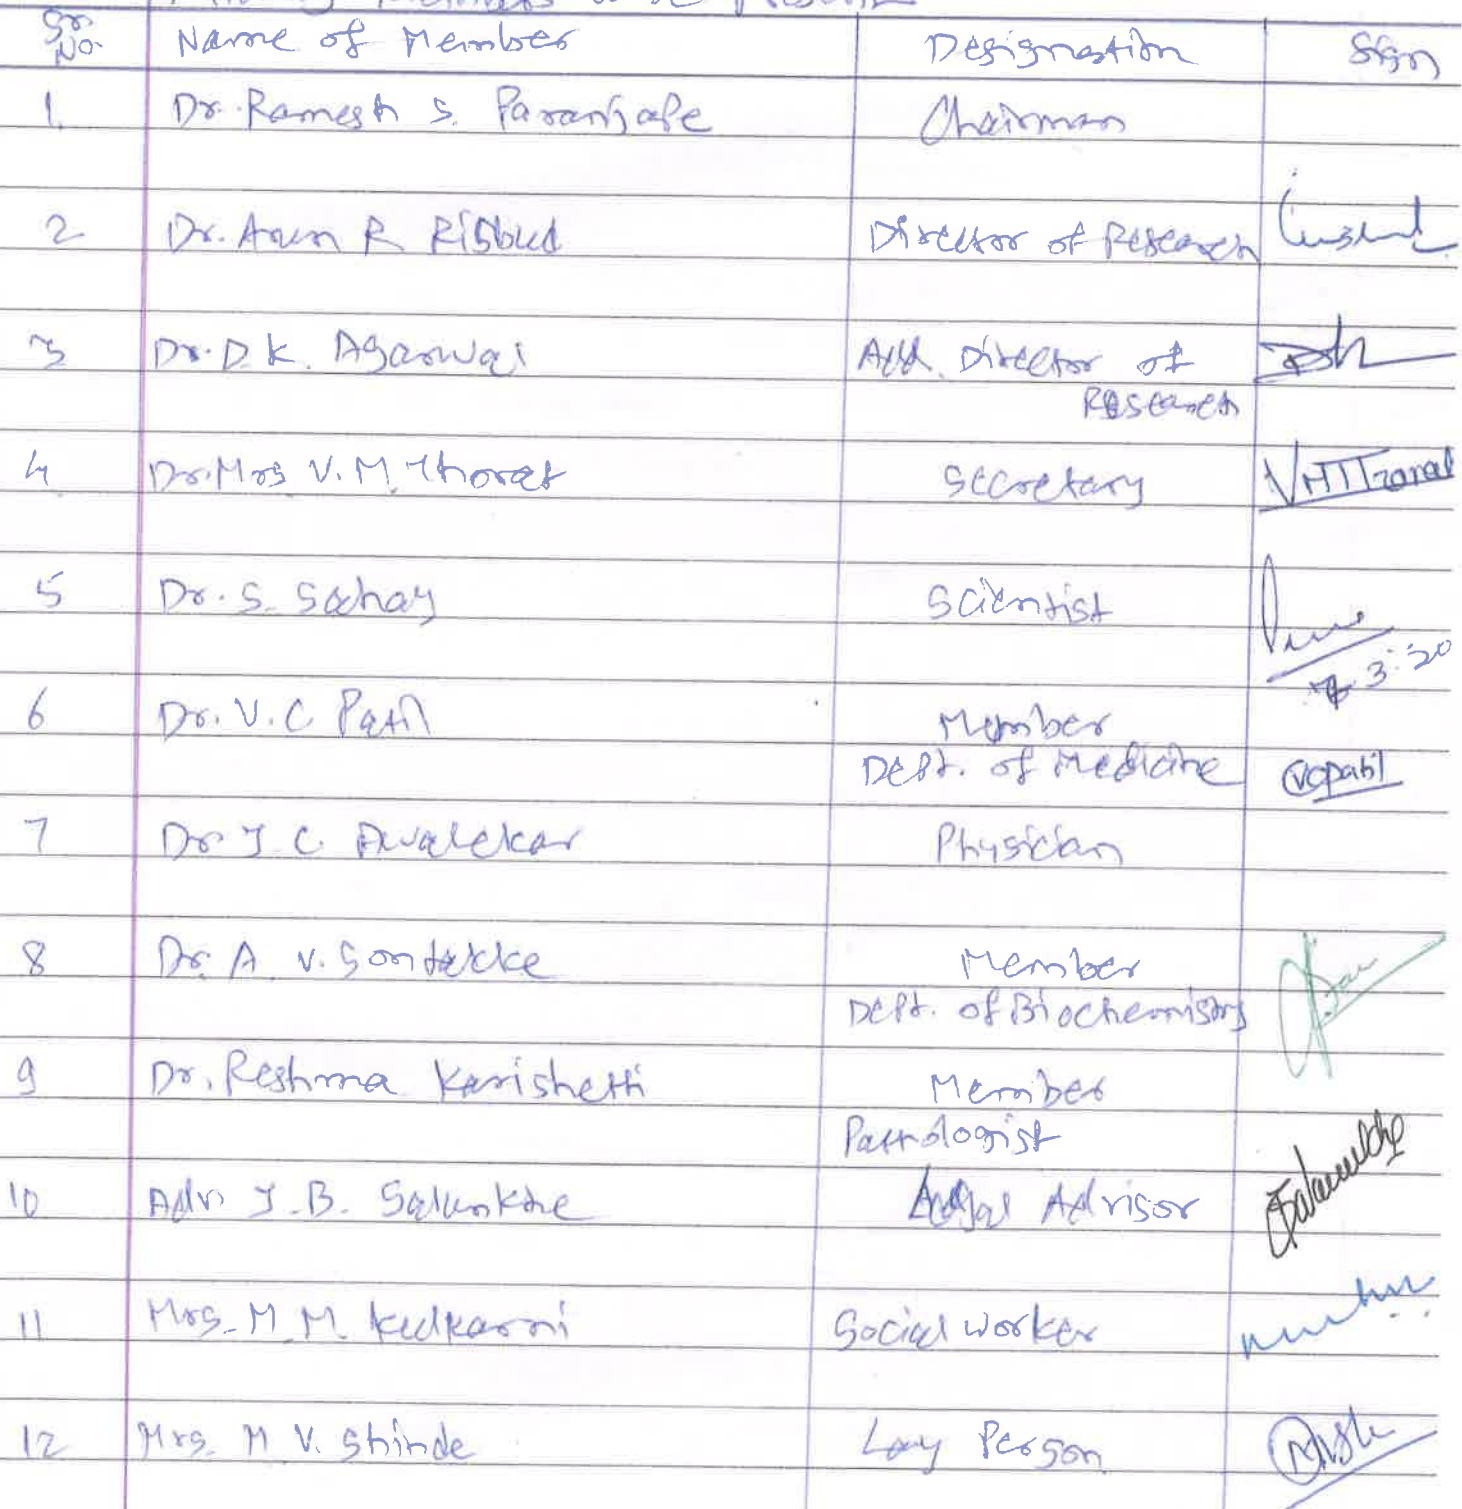 Sr. No. Name of Member Designation Sign
1. Dr. Ramesh S. Paranjape Chairman
2 Dr. Arun R Risbud Director of Research
3 Dr. D. K. Agarwal Add. Director of
Research
4 Dr. Mrs V. M. Thorat Secretary VMThorat
5 Dr. S. Sahay Scientist
3.20
6 Dr. V. C. Patil Member
Dept. of Medicine vcpatil
7 Dr. J. C. Awalekar Physician
8 Dr. A. V. Sontakke Member
Dept. of Biochemistry
9 Dr. Reshma Karishetti Member
Pathologist
10 Adv. J. B. Salunkhe Legal Advisor
11 Mrs. M. M. Kulkarni Social Worker
12 Mrs. M V. Shinde Lay Person